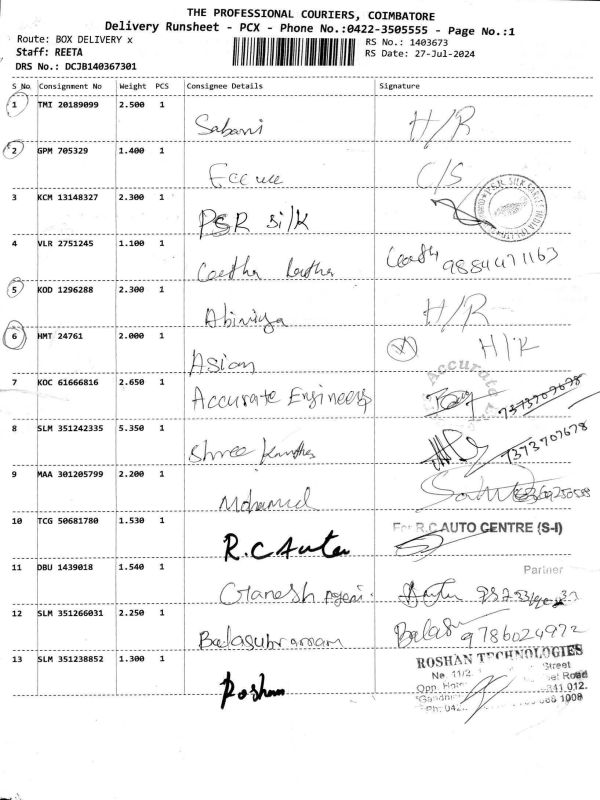 THE PROFESSIONAL COURIERS, COIMBATORE
Delivery Runsheet - PCX - Phone No.:0422-3505555 - Page No.:1
Route: BOX DELIVERY x
RS No.: 1403673
Staff: REETA
RS Date: 27-Jul-2024
DRS No.: DCJB140367301
S No Consignment No Weight PCS Consignee Details Signature
1 TMI 20189099 2.500 1 Sabari H/R
2 GPM 705329 1.400 1 C/S
3 KCM 13148327 2.300 1 PSR Silk
4 VLR 2751245 1.100 1 9884471163
5 KOD 1296288 2.300 1 Abiniya H/R
6 HMT 24761 2.000 1 Asian H/K
7 KOC 61666816 2.650 1 Accurate Engineers Accurate 7373707678
8 SLM 351242335 5.350 1 Shree 7373707678
9 MAA 301205799 2.200 1 Mohamed
10 TCG 50681780 1.530 1 R.C Auto For R.C AUTO CENTRE (S-I)
Partner
11 DBU 1439018 1.540 1 Ganesh
12 SLM 351266031 2.250 1 Balasubramam 9786024972
13 SLM 351238852 1.300 1 Roshan ROSHAN TECHNOLOGIES
Street